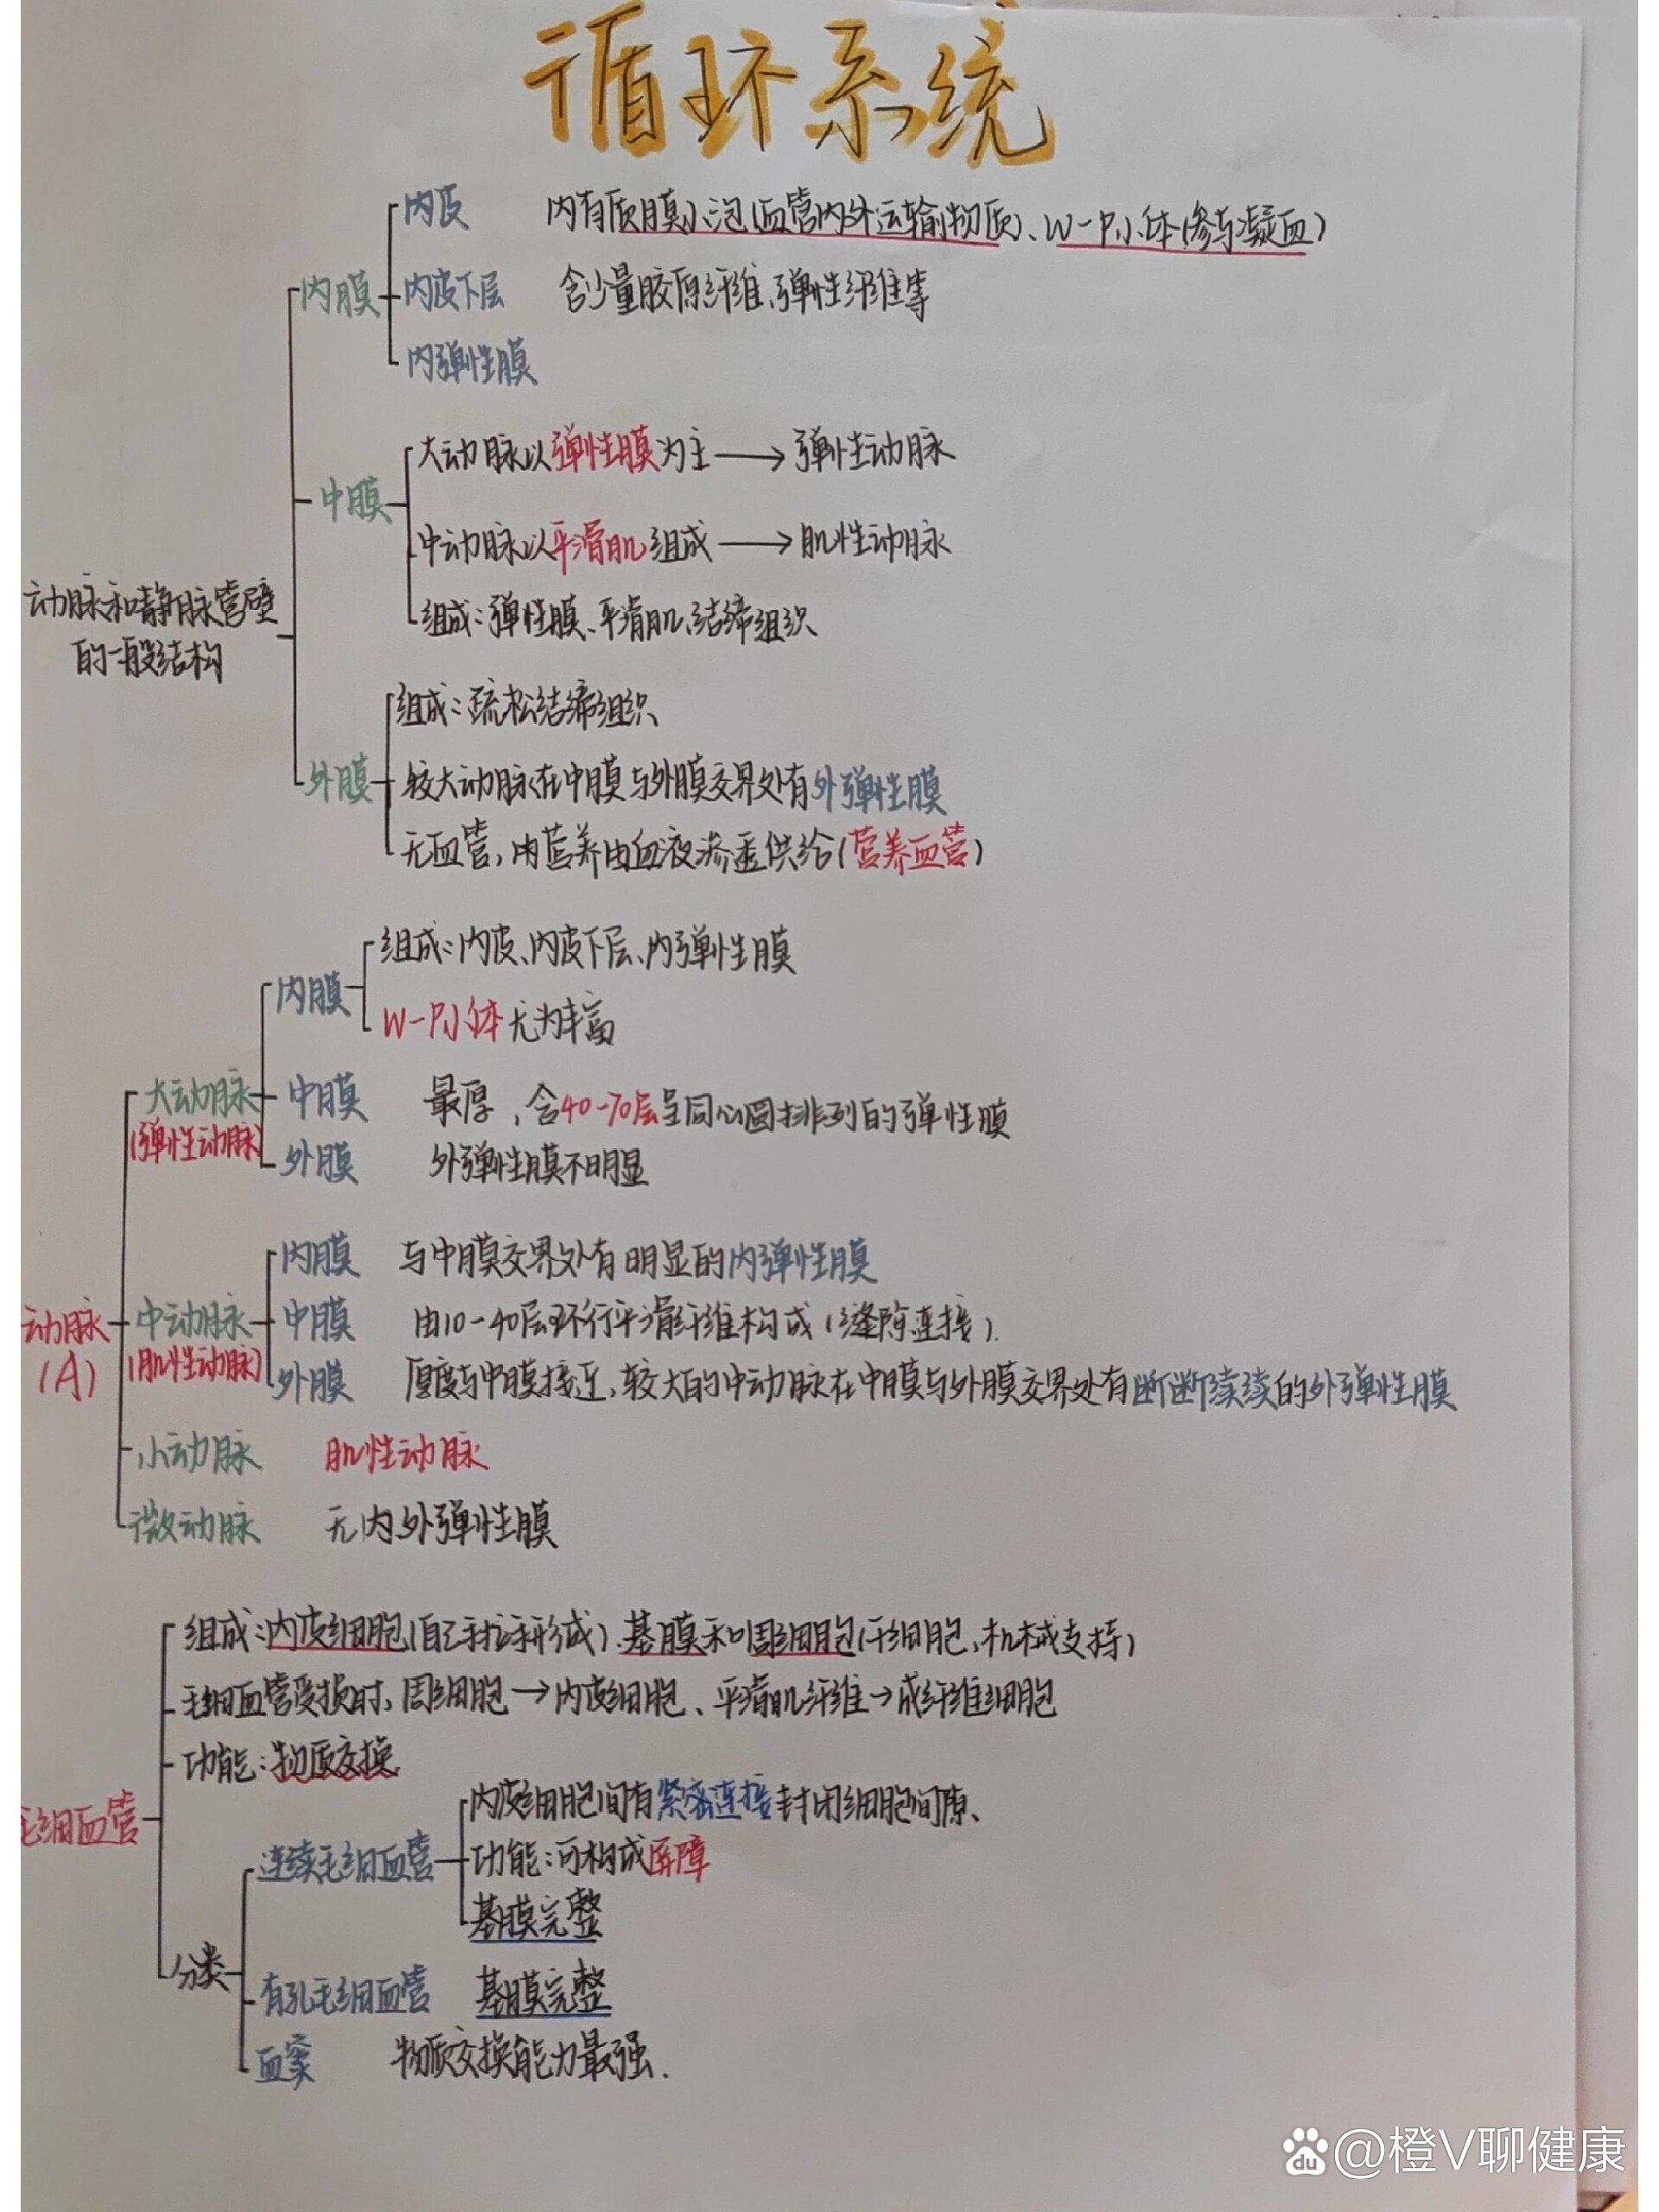 循环系统
内皮 内有质膜小泡(血管内外运输物质)、W-P小体(参与凝血)
内膜 内皮下层 含少量胶原纤维、弹性纤维等
内弹性膜
大动脉以弹性膜为主 → 弹性动脉
中膜
中动脉以平滑肌组成 → 肌性动脉
动脉和静脉管壁
的一般结构
组成:弹性膜、平滑肌、结缔组织
组成:疏松结缔组织
外膜 较大动脉在中膜与外膜交界处有外弹性膜
无血管,内营养由血液渗透供给(营养血管)
组成:内皮、内皮下层、内弹性膜
内膜
W-P小体尤为丰富
大动脉 中膜 最厚,含40-70层呈同心圆排列的弹性膜
(弹性动脉) 外膜 外弹性膜不明显
内膜 与中膜交界处有明显的内弹性膜
动脉 中动脉 中膜 由10-40层环行平滑纤维构成(缝隙连接).
(A) (肌性动脉) 外膜 厚度与中膜接近,较大的中动脉在中膜与外膜交界处有断断续续的外弹性膜
小动脉 肌性动脉
微动脉 无内外弹性膜
组成:内皮细胞(自己手拉手形成)、基膜和周细胞(干细胞、机械支持)
毛细血管受损时,周细胞→内皮细胞、平滑肌纤维→成纤维细胞
功能:物质交换
毛细血管
内皮细胞间有紧密连接封闭细胞间隙、
连续毛细血管 功能:可构成屏障
基膜完整
分类
有孔毛细血管 基膜完整
血窦 物质交换能力最强.
du @橙V聊健康